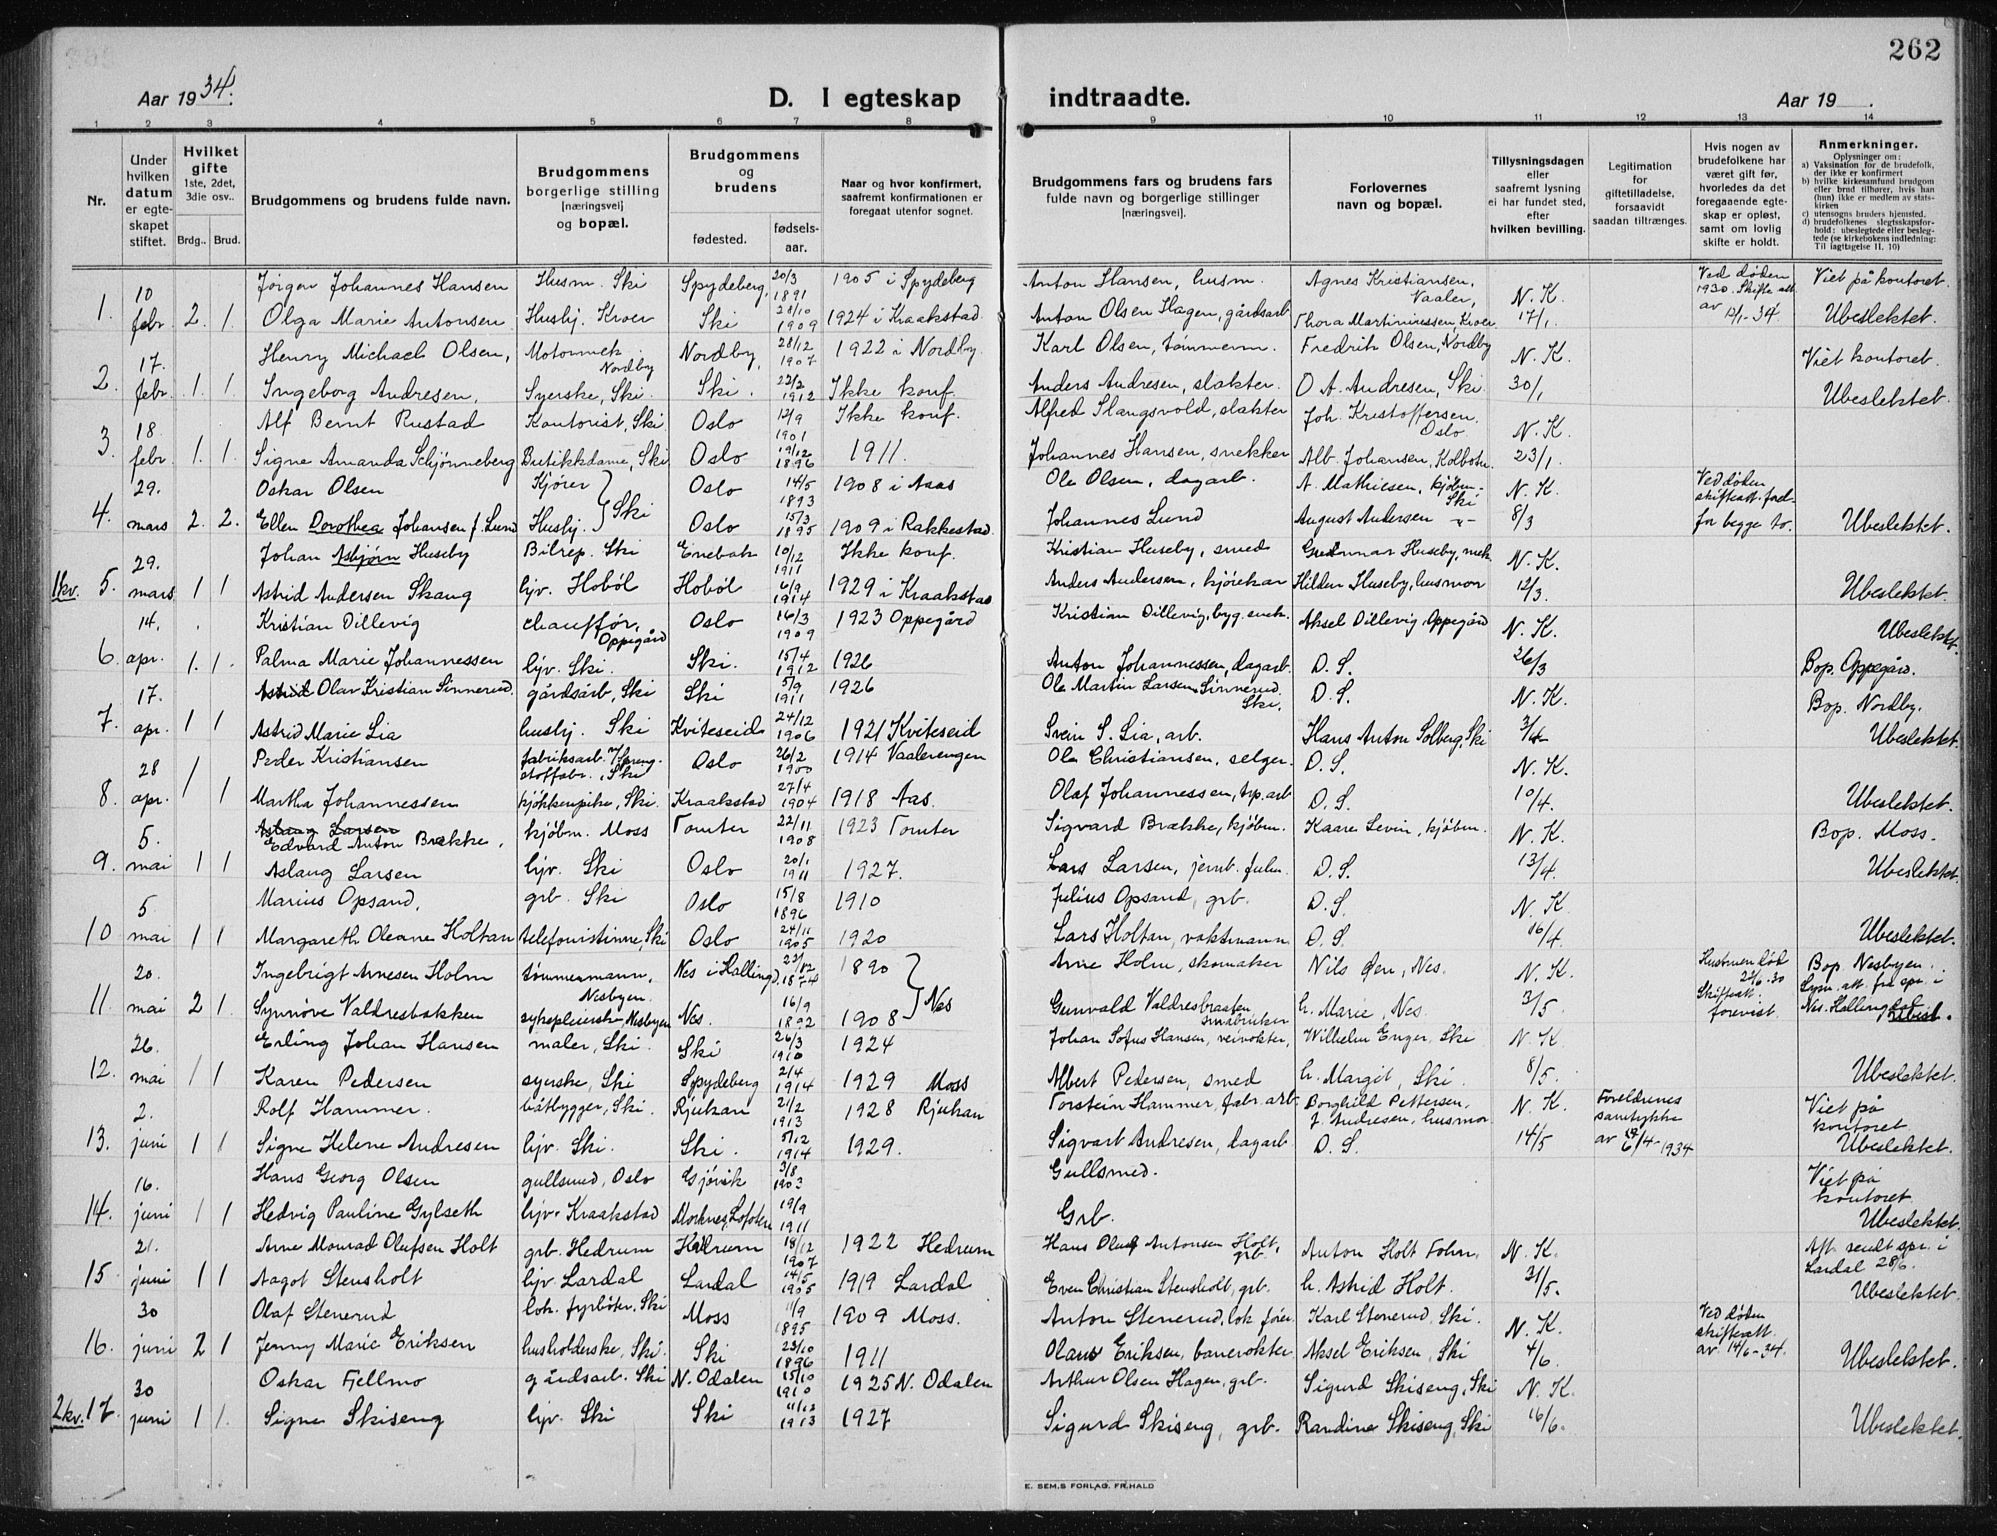 262
Aar 1934.
D. I egteskap indtraadte.
Aar 19 .
1 2 3 4 5 6 7 8 9 10 11 12 13 14
Nr.
Under hvilken datum er egteskapet stiftet.
Hvilket gifte 1ste, 2det, 3die osv..
Brdg.. Brud.
Brudgommens og brudens fulde navn.
Brudgommens borgerlige stilling [næringsvei] og bopæl.
Brudgommens og brudens
fødested. fødsels-aar.
Naar og hvor konfirmert, saafremt konfirmationen er foregaat utenfor sognet.
Brudgommens fars og brudens fars fulde navn og borgerlige stillinger [næringsvei].
Forlovernes navn og bopæl.
Tillysningsdagen eller saafremt lysning ei har fundet sted, efter hvilken bevilling.
Legitimation for giftetilladelse, forsaavidt saadan tiltrænges.
Hvis nogen av brudefolkene har været gift før, hvorledes da det foregaaende egteskap er opløst, samt om lovlig skifte er holdt.
Anmerkninger.
Oplysninger om:
a) Vaksination for de brudefolk, der ikke er konfirmert
b) hvilke kirkesamfund brudgom eller brud tilhører, hvis han (hun) ikke er medlem av statskirken
c) utensogns bruders hjemsted.
d) brudefolkenes slegtsskapsforhold: ubeslegtede eller beslegtede (se kirkebokens indledning: Til iagttagelse II. 10)
1. 10 febr 2. 1. Jørgen Johannes Hansen Husm. Ski Spydeberg, 20/3 1891 1905 i Spydeberg Anton Hansen, husm. Agnes Kristiansen, Vaaler, N. K. Ved døden 1930. Skifte att av 12/1-34 Viet på kontoret.
Olga Marie Antonsen Husbj. Kroer Ski 28/10 1909 1924 i Kraakstad Anton Olsen Hagen, gårdsarb Thora Martiniussen, Kroer 17/1. Ubeslektet.
2. 17. febr. 1. 1 Henry Michael Olsen, Motormek Nordby Nordby, 28/12 1907 1922 i Nordby. Karl Olsen, tømmerm. Fredrik Olsen, Nordby N. K. Viet kontoret.
Ingeborg Andresen, Syerske, Ski. Ski. 22/2 1912 Ikke konf. Anders Andresen, slakter. O A. Andresen, Ski 30/1 Ubeslektet.
3. 18 febr. 1. 1. Alf Bernt Rustad Kontorist, Ski Oslo 12/9 1901 Ikke konf. Alfred Slangsvold, slakter Joh. Kristoffersen. Oslo N. K.
Signe Amanda Schjønneberg Butikkdame, Ski Oslo 19/12 1896 1911. Johannes Hansen, snekker Alb. Johansen, Kolbotn. 23/1.
4. 29. mars 2. 2. Oskar Olsen Kjører } Ski Oslo 14/5 1893 1908 i Aas Ole Olsen, dagarb. A. Mathiesen, kjøbm. Ski N. K. Ved døden skifteatt. fore- for begge to.
Ellen Dorothea Johansen f. Lund Husbj. Oslo 15/3 1895 1909 i Rakkestad Johannes Lund August Andersen -"- 8/3 Ubeslektet.
1kv. 5. 29. mars 1 1 Johan Asbjørn Huseby Bilrep. Ski Enebak 10/12 1911 Ikke konf. Kristian Huseby, smed Gunnar Huseby, mek. N. K.
Astrid Andersen Skaug hjv. Hobøl Hobøl 6/9 1914 1929 i Kraakstad Anders Andersen, kjørekar Hilden Huseby, husmor 12/3. Ubeslektet.
6. 14. apr. 1. 1. Kristian Dillevig chauffør, Oppegård Oslo 16/3 1909 1923 Oppegård Kristian Dillevig, byg.snek. Aksel Dillevig, Oppegård N. K. Ubeslektet.
Palma Marie Johannessen hjv. Ski. Ski. 15/4 1912 1926 Anton Johannessen, dagarb. D. S. 26/3 Bop. Oppegård.
7. 17. apr. 1 1 Astrid Olav Kristian Sinnerud. gårdsarb, Ski Ski 5/9 1911 1926 Ole Martin Larsen Sinnerud. Ski. D. S. N. K. Bop. Nordby.
Astrid Marie Lia husbj. Ski Kviteseid 24/12 1906 1921 Kviteseid Svein S. Lia, arb. Hans Anton Solberg, Ski 3/4 Ubeslektet.
8. 28 apr. 1 1 Peder Kristiansen fabriksarb. Spreng-stoffabr., Ski Oslo 26/2 1900 1914 Vaalerengen Ole Christiansen, selger. D. S. N. K.
Martha Johannessen kjøkkenpike, Ski. Kraakstad 27/4 1904 1918 Aas. Olaf Johannessen, trp.arb D. S. 10/4. Ubeslektet.
9. 5. mai 1 1 Aslaug Larsen Edvard Anton Brække, kjøbm. Moss Tomter 22/11 1908 1923 Tomter Sigvard Brække, kjøbm. Kaare Levin, kjøbm. N. K. Bop. Moss.
Aslaug Larsen hjv. Ski Oslo 20/1 1911 1927. Lars Larsen, jernb. fulm. D. S. 13/4. Ubeslektet.
10 5. mai 1 1 Marius Opsand, grb. Ski Oslo 15/8 1896 1910 Julius Opsand, grb. D. S. N. K.
Margareth Oleane Holtan telefonistinne, Ski Oslo 24/11 1905 1920 Lars Holtan, vaktmann D. S. 16/4. Ubeslektet.
11. 20. mai 2 1 Ingebrigt Arnesen Holm tømmermann, Nesbyen. Nes i Halling 23/12 1874 1890 } Nes Arne Holm, skomaker Nils Øen, Nes. N. K. Hustruen død 23/6-30 Skifteatt. forevist. Bop. Nesbyen. Lysn. att. fra spr. i Nes. Hallingdal Ubesl.
Synnøve Valdresbakken sykepleierske, Nesbyen Nes. 16/9 1892 1908 Gunvald Valdresbraaten småbruker h. Marie, Nes. 3/5.
12. 26. mai 1 1 Erling Johan Hansen maler, Ski. Ski 26/3 1910 1924 Johan Sofus Hansen, veivokter, Wilhelm Enger, Ski N. K
Karen Pedersen syerske, Ski Spydeberg 2/4 1914 1929 Moss Albert Pedersen, smed h. Margit, Ski. 8/5. Ubeslektet.
13. 2. juni 1 1 Rolf Hammer. båtbygger, Ski. Rjukan 21/2 1913 1928 Rjukan Torstein Hammer, fabr. arb. Borghild Pettersen, f. Andresen, husmor N. K. Foreldrenes samtykke av 19/4-1934 Viet på kontoret
Signe Helene Andresen hjv. Ski. Ski. 5/12 1914 1929. Sigvart Andresen, dagarb. D. S. 14/5 Ubeslektet.
14. 16. juni 1 1 Hans Georg Olsen gullsmd, Oslo Gjøvik 3/8 1903 Gullsmed. Viet på kontoret.
Hedvig Pauline Gylseth hjv. Kraakstad Morknes, Lofoten 19/9 1911 Grb. Ubeslektet.
15 21. juni 1 1 Arne Monrad Olufsen Holt grb. Hedrum Hedrum 18/12 1907 1922 Hedrum Hans Oluf Antonsen Holt, grb. Anton Holt N. K. Att. sendt spr. i Lardal 28/6.
Aagot Stensholt hjv. Lardal Lardal 14/5 1905 1919 Lardal Even Christian Stensholt, grb. h. Astrid Holt. 31/5. Ubeslektet.
16. 30 juni 2 1 Olaf Stenerud lok. fyrbøter, Ski Moss 11/9 1895 1909 Moss. Anton Stenerud, lok. fører Karl Stenerud, Ski. N. K. Ved døden skifteatt. av 14/6-34.
Jenny Marie Eriksen husholderske, Ski. Ski 23/10 1896 1911 Olaus Eriksen, banevokter Aksel Eriksen, Ski 4/6. Ubeslektet.
2kv. 17. 30 juni 1 1. Oskar Fjellmo gårdsarb. Ski N. Odalen 15/10 1910 1925 N. Odalen Arthur Olsen Hagen, grb. Sigurd Skiseng, Ski N. K.
Signe Skiseng hjv. Ski Ski 11/12 1913 1927 Sigurd Skiseng, grb. Randine Skiseng, Ski 16/6. Ubeslektet.
E. SEM.S FORLAG. FR.HALD